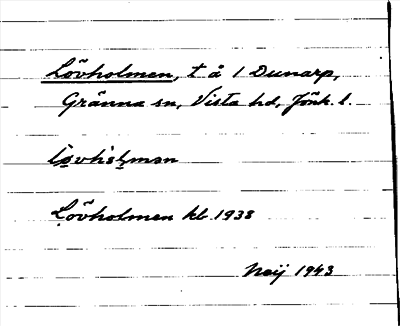 Lövholmen, t å 1 Dunarp,
Gränna sn, Vista hd, Jönk. l.
Lövholmen kb 1938
Neij 1943